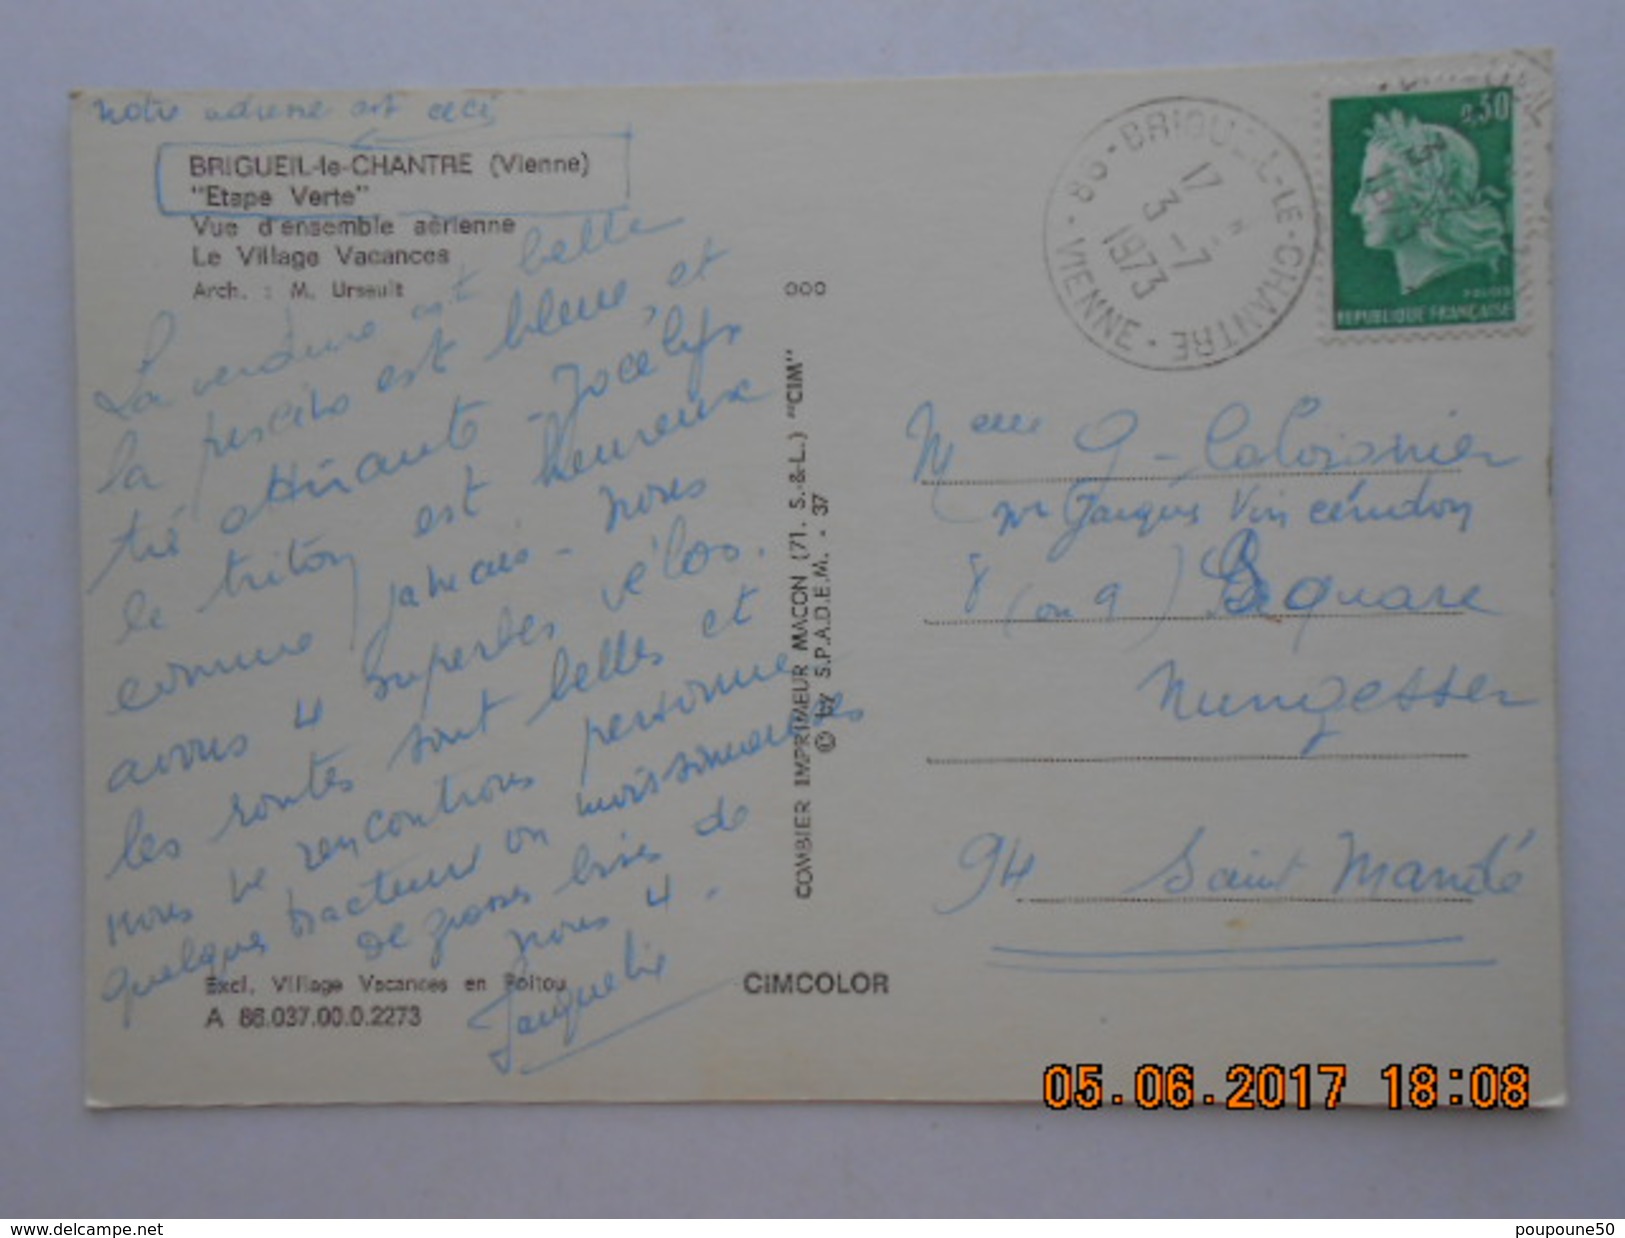 notre adresse est ceci
BRIGUEIL-le-CHANTRE (Vienne)
"Etape Verte"
Vue d'ensemble aérienne
Le Village Vacances
Arch. : M. Ursault
La verdure est belle
la piscine est bleue, et
très attirante - Jocelyn
le triton est heureux
comme jamais - nous
avons 4 superbes vélos.
les routes sont belles et
nous ne rencontrons personne
quelques tracteurs ou moissonneuses
de grosses bises de
nous 4 -
Jacqueline
Excl. Village Vacances en Poitou
A 86.037.00.0.2273
CIMCOLOR
000
COMBIER IMPRIMEUR MACON (71. S.-&-L.) "CIM"
© by S.P.A.D.E.M. - 37
86 - BRIGUEIL-LE-CHANTRE - VIENNE
17 H
3 - 7
1973
0,30
REPUBLIQUE FRANÇAISE
Mme G-
Mr Jacques Vincendon
8 (ou 9) Square
Nungesser
94 Saint Mandé
05.06.2017 18:08
www.delcampe.net
poupoune50